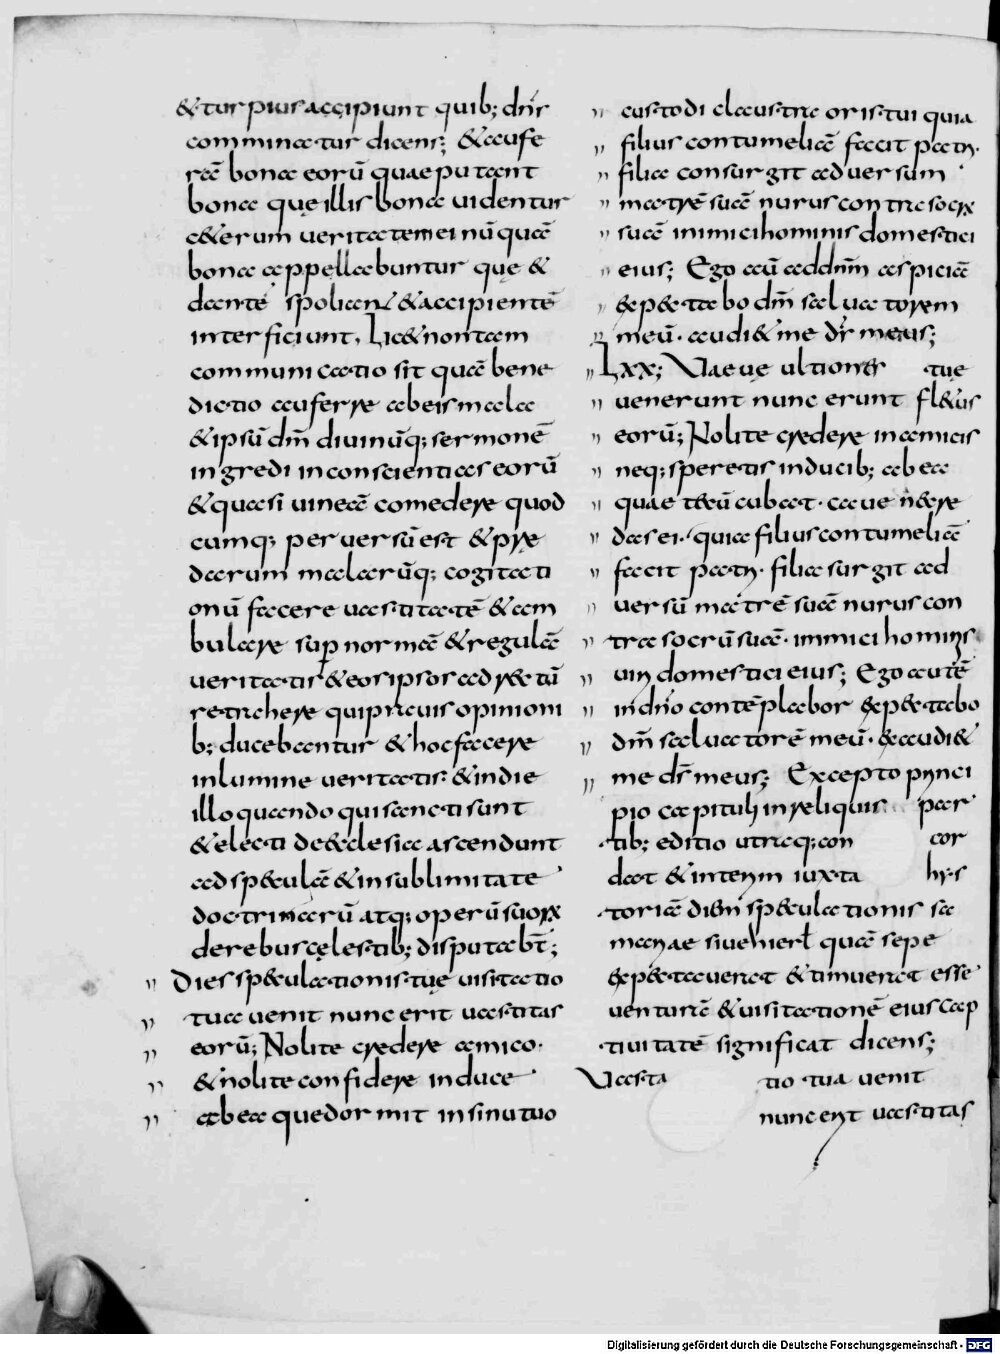 & turpius accipiunt quib; dn̄s
comminatur dicens; & aufe
rā bona eorū quae putant
bona quę illis bona uidentur
c&erum ueritatem ei nūquā
bona appellabuntur quę &
dantē spolian / & accipientē
interficiunt. Lic& non tam
communicatio sit quā bene
dictio auferre ab eis mala
& ipsū dm̄ diuinūq; sermonē
ingredi in conscientias eorū
& quasi uineā comedere quod
cumq; peruersū est & pre
darum malarūq; cogitati
onū facere uastitatē & am
bulare sup normā & regulā
ueritatis & eos ipsos ad rectū
retrahere qui prauis opinioni
b; ducebantur & hoc facere
in lumine ueritatis & in die
illo quando qui sancti sunt
& electi de ecclesia ascendunt
ad speculā & in sublimitate
doctrinarū atq; operū suorum
de rebus cęlestib; disputabt̄;
Dies speculationis tuę uisitatio
tua uenit nunc erit uastitas
eorū; Nolite credere amico
& nolite confidere in duce
ab ea que dormit in sinu tuo
custodi claustra oris tui quia
filius contumeliā facit patri.
filia consurgit aduersum
matrē suā nurus contra socrū
suā inimici hominis domestici
eius; Ego aū ad dn̄m aspiciā
expectabo dm̄ saluatorem
meū. audi& me ds̄ meus;
Lxx; Vae uę ultiones tuę
uenerunt nunc erunt fl&us
eorū; Nolite credere in amicis
neq; speretis in ducib; ab ea
quae tecū cubat. caue ne cre
das ei. quia filius contumeliā
facit patri. filia surgit ad
uersū matrē suā nurus con
tra socrū suā. inimici hominis
uiri domestici eius; Ego autē
in dn̄o contēplabor expectabo
dm̄ saluatorē meū. exaudi&
me ds̄ meus; Excepto princi
pio capituli in reliquis par
tib; editio utraq; con cor
dat & interim iuxta hys
toriā diem speculationis sa
mariae siue hierl̄ quā sepe
expectauerat & timuerat esse
venturā & uisitationē eius cap
tiuitatē significat dicens;
Vasta tio tua uenit
nunc erit uastitas
Digitalisierung gefördert durch die Deutsche Forschungsgemeinschaft - DFG